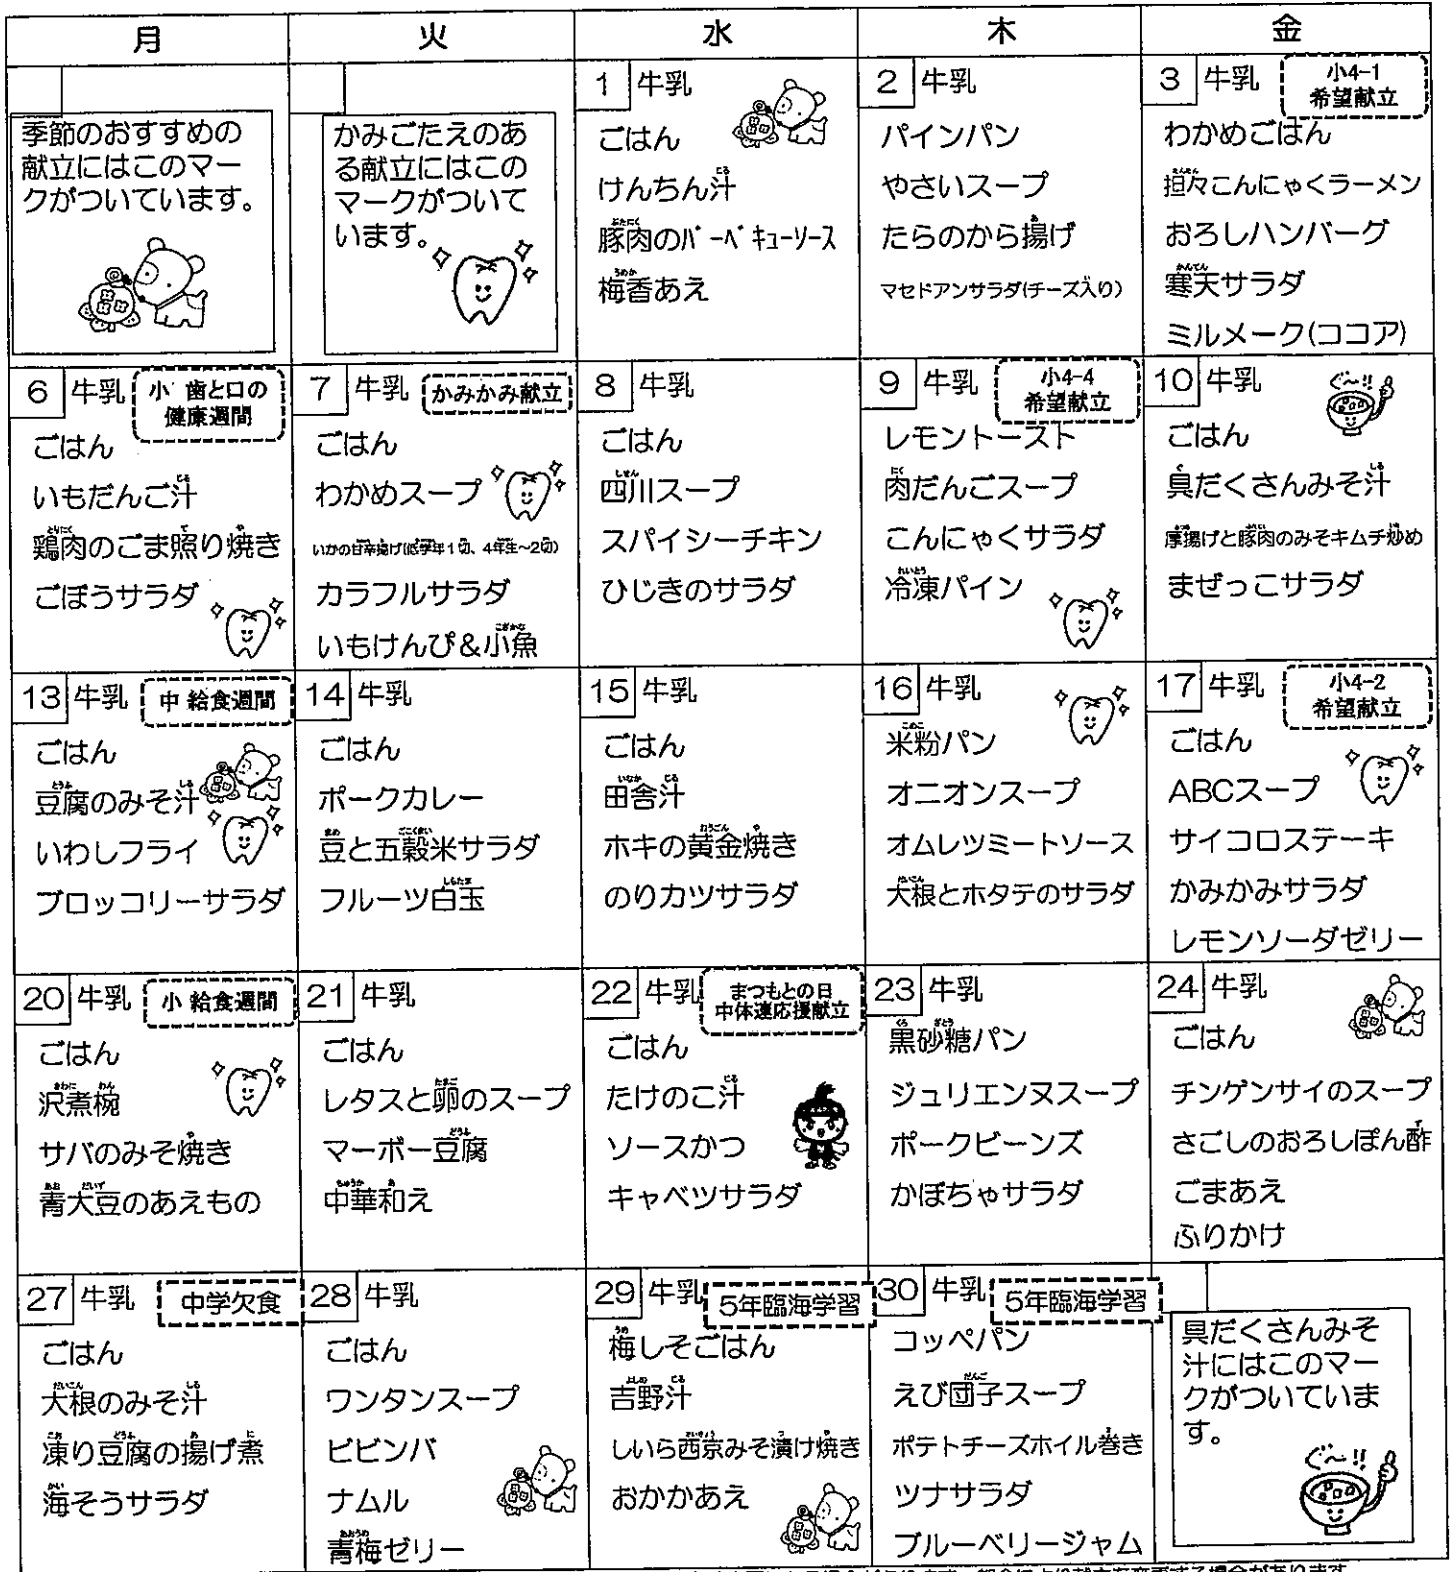 月 火 水 木 金
季節のおすすめの
献立にはこのマー
クがついています。
かみごたえのあ
る献立にはこの
マークがついて
います。
1 牛乳
ごはん
けんちん汁
豚肉のバーベキューソース
梅香あえ
2 牛乳
パインパン
やさいスープ
たらのから揚げ
マセドアンサラダ(チーズ入り)
3 牛乳
小4-1
希望献立
わかめごはん
担々こんにゃくラーメン
おろしハンバーグ
寒天サラダ
ミルメーク(ココア)
6 牛乳
小 歯と口の
健康週間
ごはん
いもだんご汁
鶏肉のごま照り焼き
ごぼうサラダ
7 牛乳
かみかみ献立
ごはん
わかめスープ
いかの甘辛揚げ(低学年1切、4年生~2切)
カラフルサラダ
いもけんぴ&小魚
8 牛乳
ごはん
四川スープ
スパイシーチキン
ひじきのサラダ
9 牛乳
小4-4
希望献立
レモントースト
肉だんごスープ
こんにゃくサラダ
冷凍パイン
10 牛乳
ぐ~!!
ごはん
具だくさんみそ汁
厚揚げと豚肉のみそキムチ炒め
まぜっこサラダ
13 牛乳
中 給食週間
ごはん
豆腐のみそ汁
いわしフライ
ブロッコリーサラダ
14 牛乳
ごはん
ポークカレー
豆と五穀米サラダ
フルーツ白玉
15 牛乳
ごはん
田舎汁
ホキの黄金焼き
のりカツサラダ
16 牛乳
米粉パン
オニオンスープ
オムレツミートソース
大根とホタテのサラダ
17 牛乳
小4-2
希望献立
ごはん
ABCスープ
サイコロステーキ
かみかみサラダ
レモンソーダゼリー
20 牛乳
小 給食週間
ごはん
沢煮椀
サバのみそ焼き
青大豆のあえもの
21 牛乳
ごはん
レタスと卵のスープ
マーボー豆腐
中華和え
22 牛乳
まつもとの日
中体連応援献立
ごはん
たけのこ汁
ソースかつ
キャベツサラダ
23 牛乳
黒砂糖パン
ジュリエンヌスープ
ポークビーンズ
かぼちゃサラダ
24 牛乳
ごはん
チンゲンサイのスープ
さごしのおろしぽん酢
ごまあえ
ふりかけ
27 牛乳
中学欠食
ごはん
大根のみそ汁
凍り豆腐の揚げ煮
海そうサラダ
28 牛乳
ごはん
ワンタンスープ
ビビンバ
ナムル
青梅ゼリー
29 牛乳
5年臨海学習
梅しそごはん
吉野汁
しいら西京みそ漬け焼き
おかかあえ
30 牛乳
5年臨海学習
コッペパン
えび団子スープ
ポテトチーズホイル巻き
ツナサラダ
ブルーベリージャム
具だくさんみそ
汁にはこのマー
クがついていま
す。
ぐ~!!